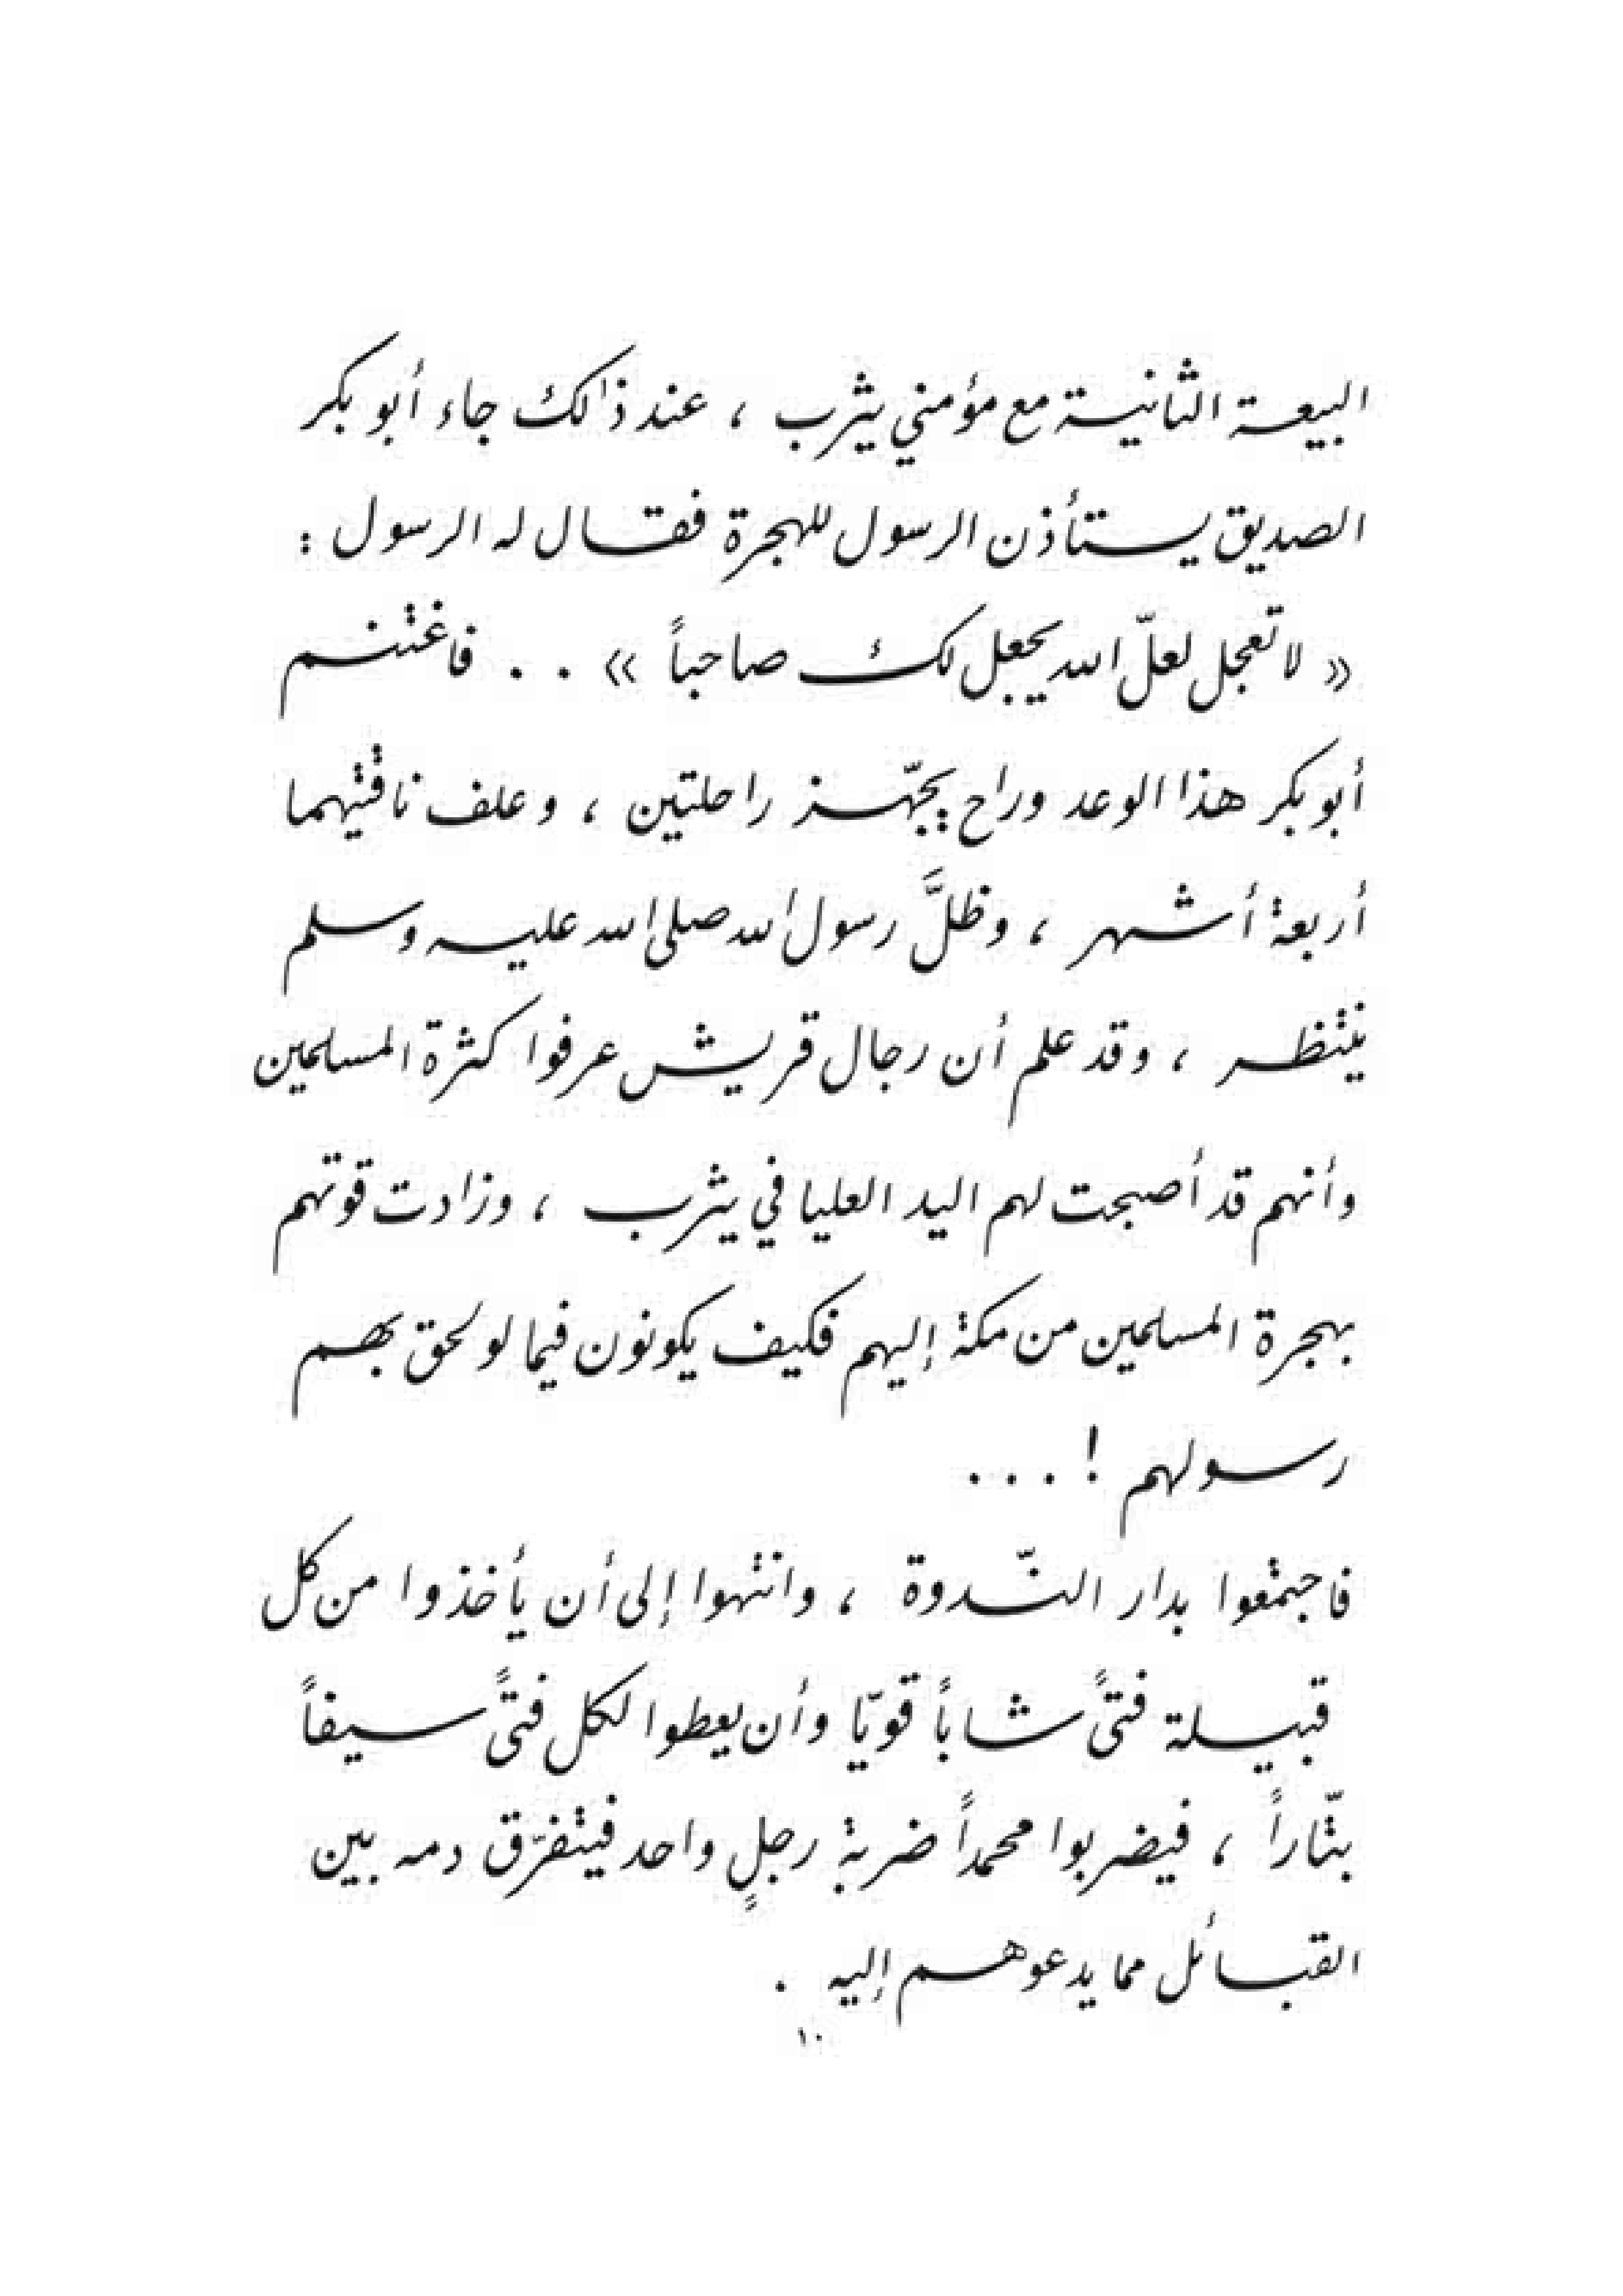 البيعة الثانية مع مؤمني يثرب ، عند ذالك جاء أبو بكر
الصديق يستأذن الرسول للهجرة فقال له الرسول :
« لا تعجل لعلّ الله يجعل لك صاحباً » . . فاغتنم
أبو بكر هذا الوعد وراح يجهّز راحلتين ، وعلف ناقتيهما
أربعة أشهر ، وظلَّ رسول الله صلى الله عليه وسلم
ينتظر ، وقد علم أن رجال قريش عرفوا كثرة المسلمين
وأنهم قد أصبحت لهم اليد العليا في يثرب ، وزادت قوتهم
بهجرة المسلمين من مكة إليهم فكيف يكونون فيما لو لحق بهم
رسولهم ! . . .
فاجتمعوا بدار النّدوة ، وانتهوا إلى أن يأخذوا من كل
قبيلة فتىً شاباً قويّا وأن يعطوا لكل فتىً سيفاً
بتّاراً ، فيضربوا محمداً ضربة رجلٍ واحد فيتفرّق دمه بين
القبائل مما يدعوهم إليه .
١٠